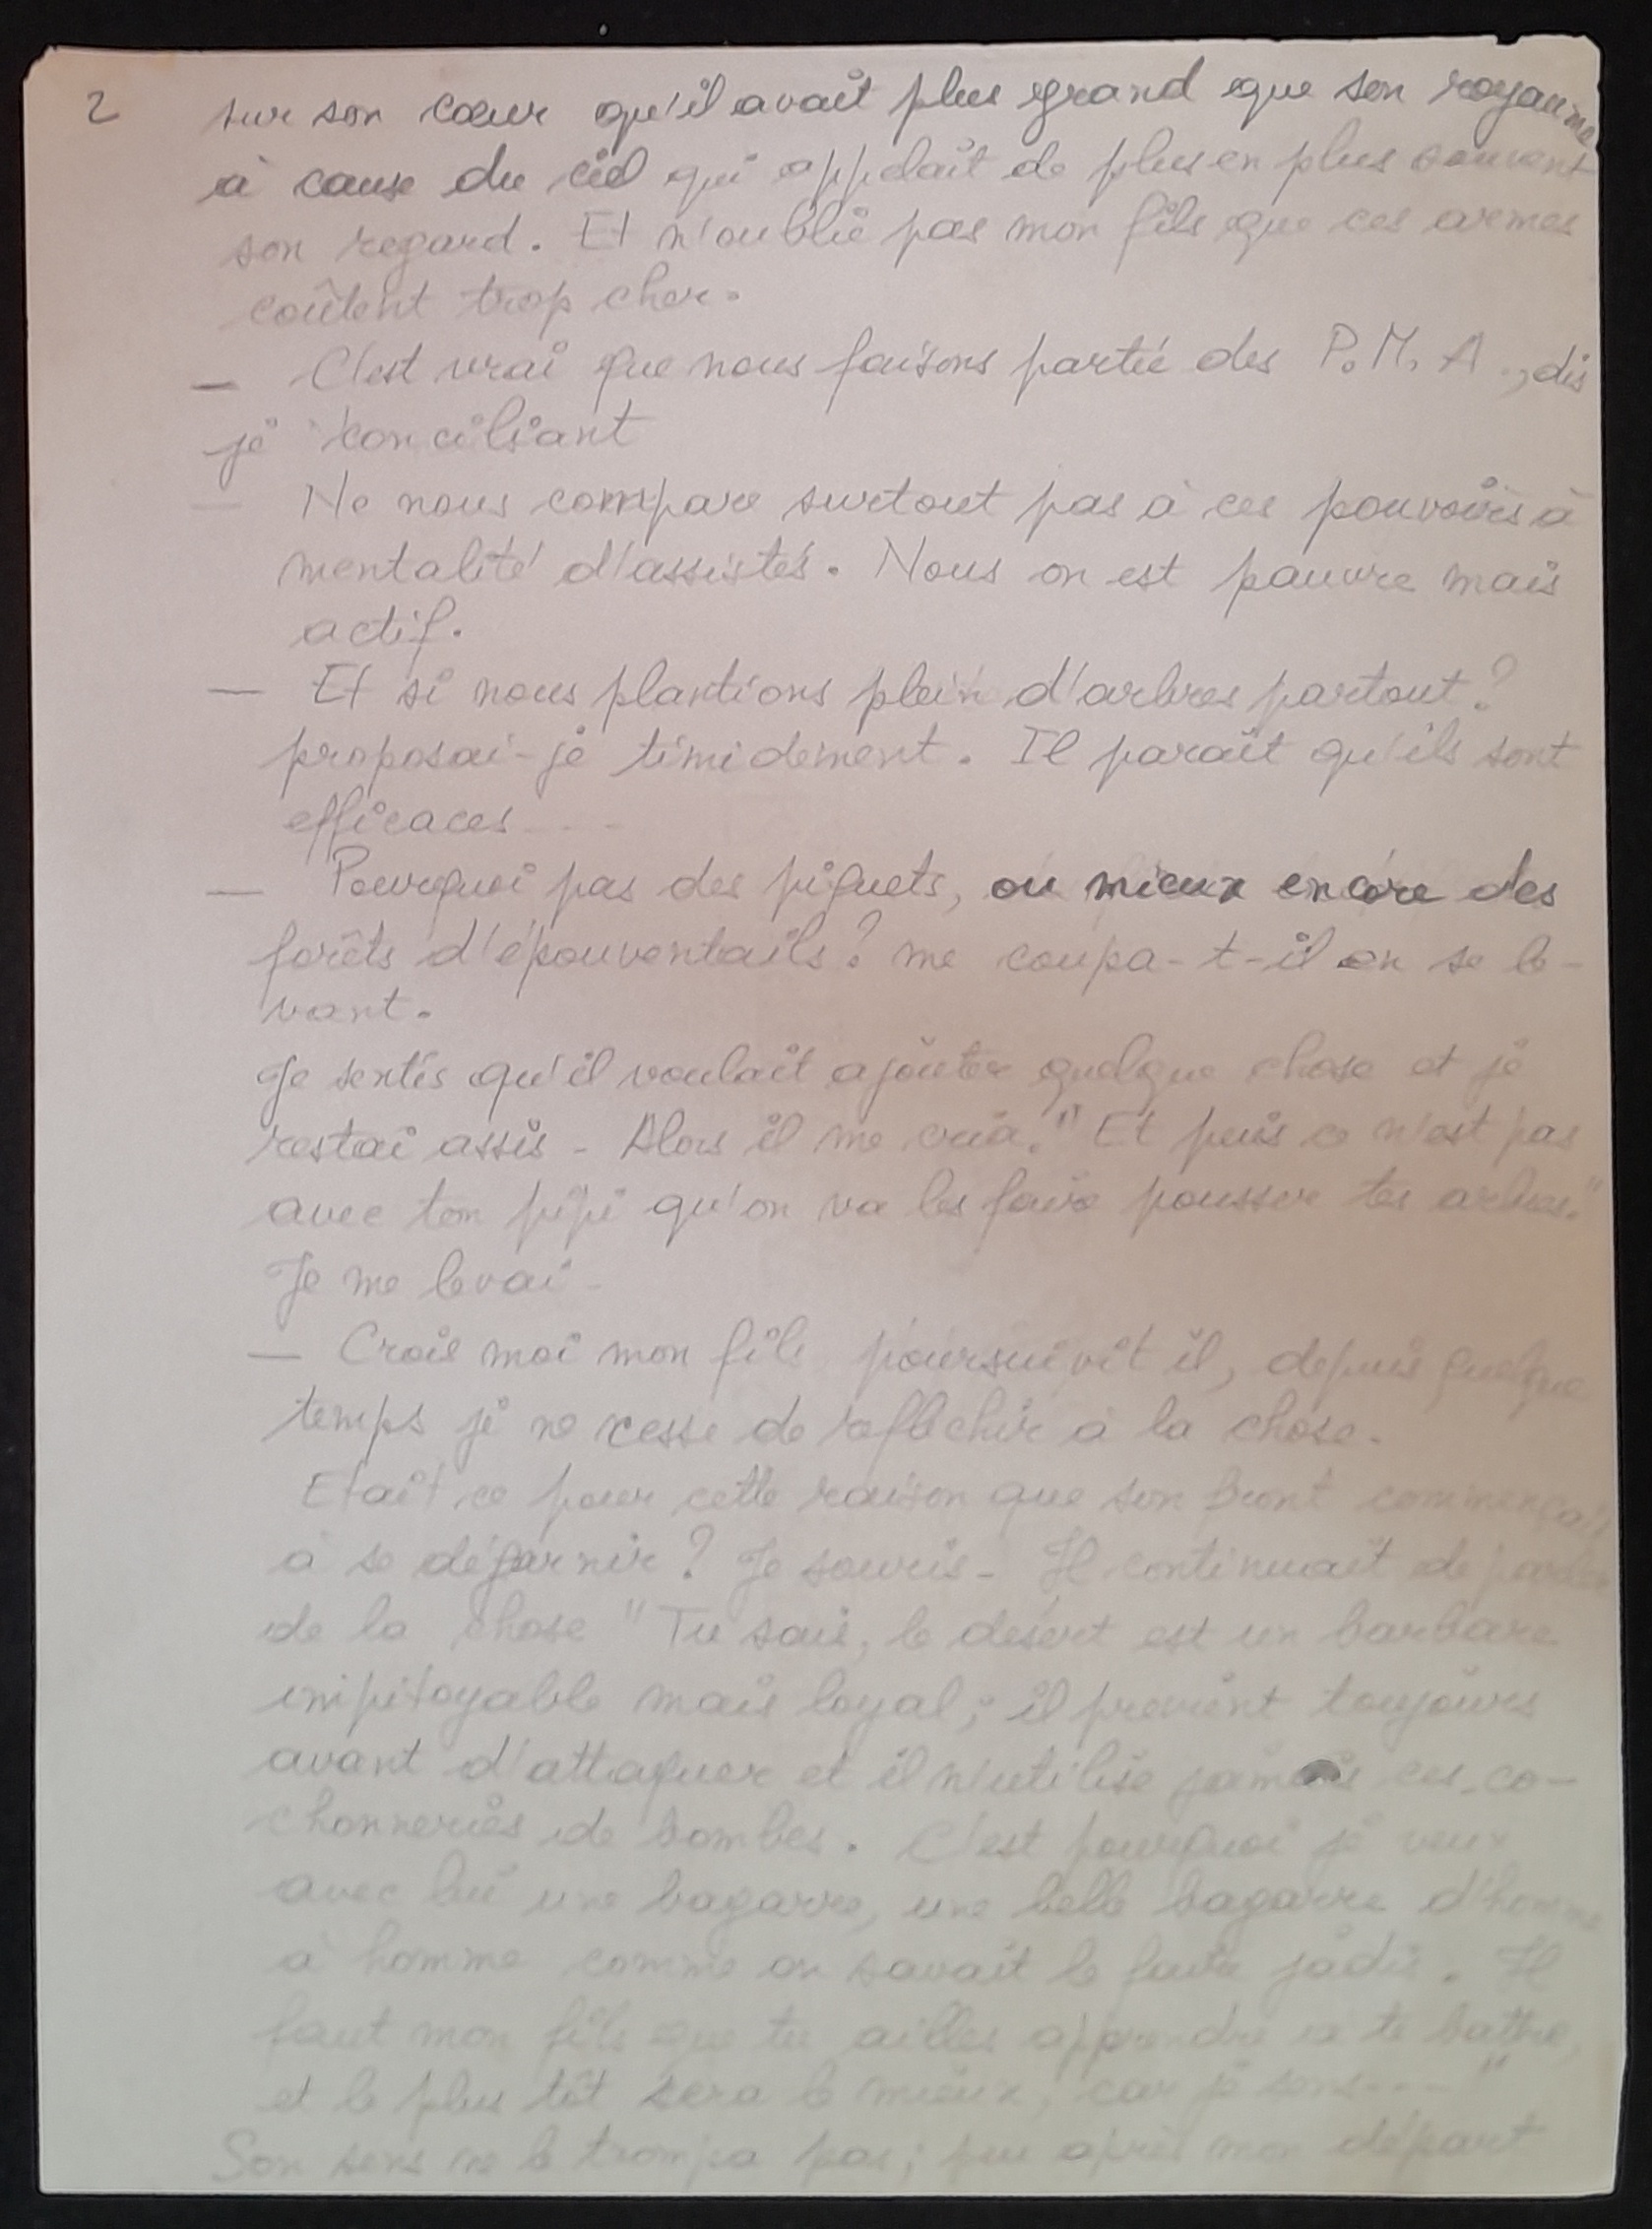 2
sur son cœur qu'il avait plus grand que son royaume
à cause du ciel qui appelait de plus en plus souvent
son regard. Et n'oublie pas mon fils que ces armes
coûtent trop cher.
— C'est vrai que nous faisons partie des P.M.A., dis
je conciliant
— Ne nous compare surtout pas à ces pouvoirs à
mentalité d'assistés. Nous on est pauvre mais
actif.
— Et si nous plantions plein d'arbres partout ?
proposai-je timidement. Il paraît qu'ils sont
efficaces ....
— Pourquoi pas des piquets, ou mieux encore des
forêts d'épouventails ? me coupa-t-il en se le-
vant.
Je sentis qu'il voulait ajouter quelque chose et je
restai assis - Alors il me cria : "Et puis ce n'est pas
avec ton pipi qu'on va les faire pousser tes arbres."
Je me levai -
— Crois moi mon fils poursuivit il, depuis quelque
temps je ne cesse de reflechir à la chose.
Etait ce pour cette raison que son front commençait
à se dégarnir ? Je souris - Il continuait de parler
de la chose "Tu sais, le desert est un barbare
impitoyable mais loyal ; il previent toujours
avant d'attaquer et il n'utilise jamais ces co-
chonneries de bombes. C'est pourquoi je veux
avec lui une bagarre, une belle bagarre d'homme
à homme comme on savait le faire jadis. Il
faut mon fils que tu ailles apprendre à te battre,
et le plus tôt sera le mieux, car je sens ...."
Son sens ne le trompa pas ; peu après mon départ